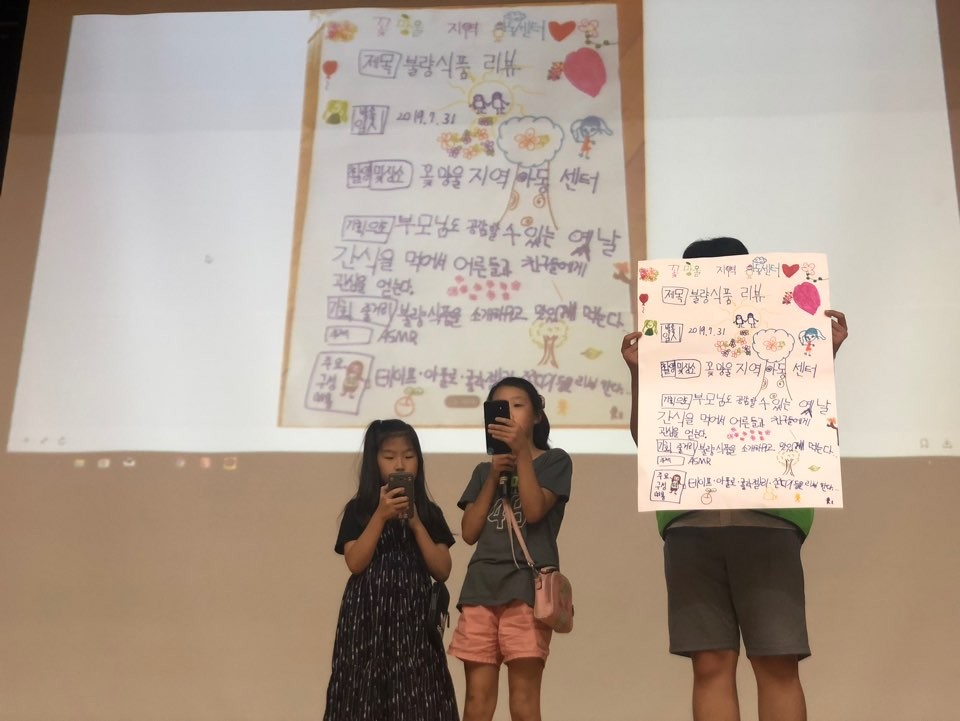 꽃망울 지역 아동센터
제목 불량식품 리뷰
일시 2019.7.31
촬영및장소 꽃망울 지역 아동 센터
기획의도 부모님도 공감할 수 있는 옛날
간식을 먹어서 어른들과 친구들에게
관심을 얻는다.
기획 줄거리 불량식품을 소개하고 맛있게 먹는다.
ASMR
주요
구성
내용
테이프·아폴로· 리뷰 한다...
꽃망울 지역 아동센터
제목 불량식품 리뷰
일시 2019.7.31
촬영및장소 꽃망울 지역 아동 센터
기획의도 부모님도 공감할 수 있는 옛날
간식을 먹어서 어른들과 친구들에게
관심을 얻는다.
기획 줄거리 불량식품을 소개하고 맛있게 먹는다.
ASMR
주요
구성
내용
테이프·아폴로· 리뷰 한다...